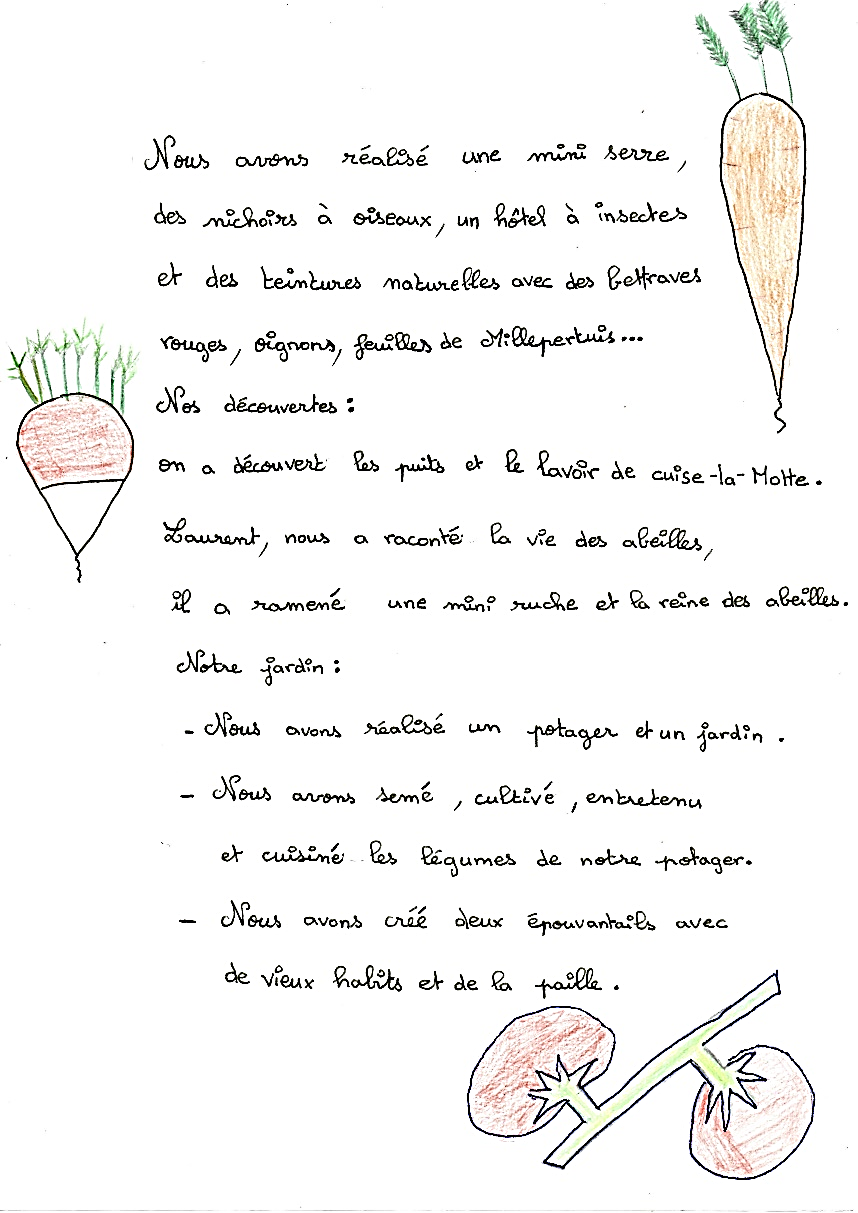 Nous avons réalisé une mini serre,
des nichoirs à oiseaux, un hôtel à insectes
et des teintures naturelles avec des bettraves
rouges, oignons, feuilles de Millepertuis...
Nos découvertes :
on a découvert les puits et le lavoir de cuise-la-Motte.
Laurent, nous a raconté la vie des abeilles,
il a ramené une mini ruche et la reine des abeilles.
Notre jardin :
- Nous avons réalisé un potager et un jardin.
- Nous avons semé, cultivé, entretenu
et cuisiné les légumes de notre potager.
- Nous avons créé deux épouvantails avec
de vieux habits et de la paille.